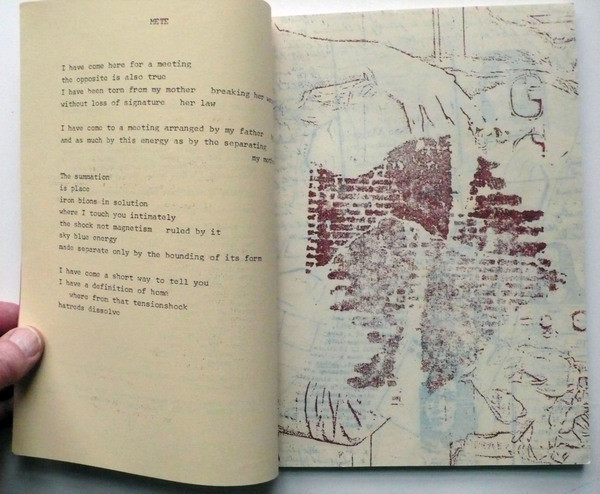 METE
I have come here for a meeting
the opposite is also true
I have been torn from my mother breaking her
without loss of signature her law
I have come to a meeting arranged by my father
and as much by this energy as by the separating
my
The summation
is place
iron bioms in solution
where I touch you intimately
the shock not magnetism ruled by it
sky blue energy
made separate only by the bounding of its form
I have come a short way to tell you
I have a definition of home
where from that tensionshock
hatreds dissolve
G